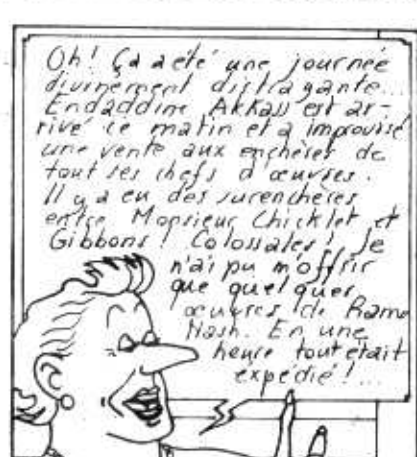 Oh! Ça a été une journée
divinement distragante...
Endaddine Akkass est ar-
rivé ce matin et a improvisé
une vente aux enchères de
tout ses chefs d'œuvres.
Il y a eu des surenchères
entre Monsieur Chicklet et
Gibbons! Colossales! Je
n'ai pu m'offrir
que quelques
œuvres de Ramo
Nash. En une
heure tout était
expédié!...